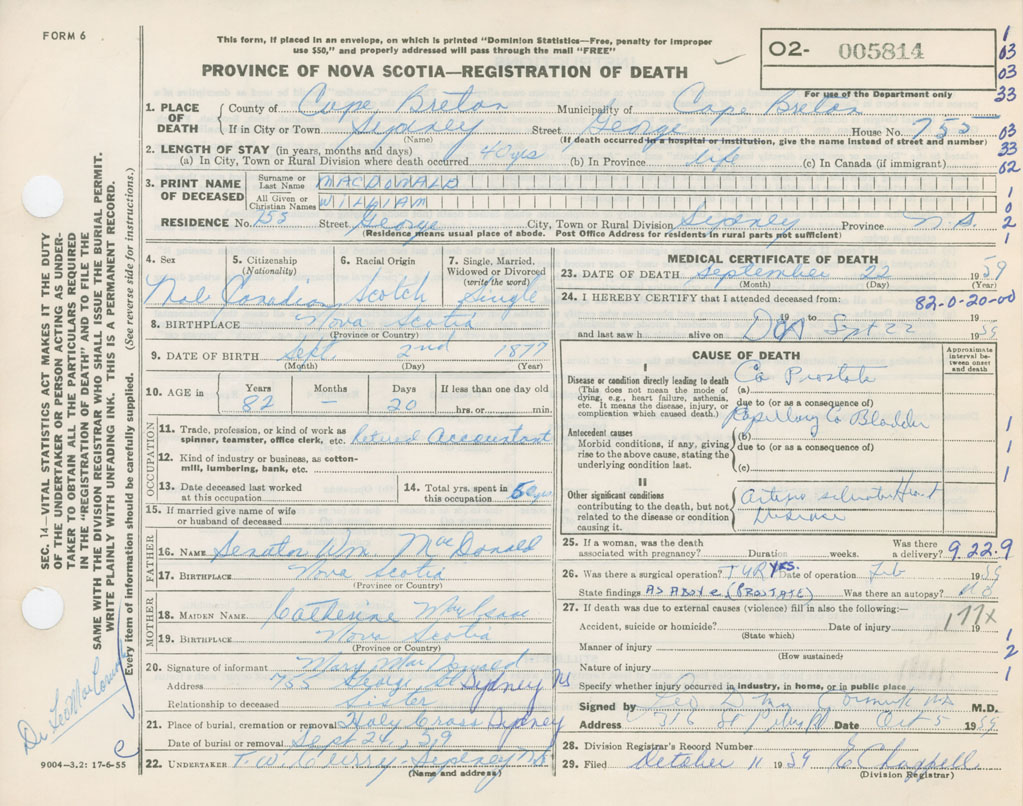 FORM 6
This form, if placed in an envelope, on which is printed "Dominion Statistics—Free, penalty for improper
use $50," and properly addressed will pass through the mail "FREE"
PROVINCE OF NOVA SCOTIA—REGISTRATION OF DEATH
O2- 005814
For use of the Department only
1
03
03
33
03
33
02
1
0
2
1
1. PLACE OF DEATH
County of Cape Breton Municipality of Cape Breton
If in City or Town Sydney Street George House No. 755
(Name) (If death occurred in a hospital or institution, give the name instead of street and number)
2. LENGTH OF STAY (in years, months and days)
(a) In City, Town or Rural Division where death occurred 40 yrs (b) In Province life (c) In Canada (if immigrant)
3. PRINT NAME OF DECEASED
Surname or Last Name MACDONALD
All Given or Christian Names WILLIAM
RESIDENCE No. 755 Street George City, Town or Rural Division Sydney Province N.S.
(Residence means usual place of abode. Post Office Address for residents in rural parts not sufficient)
4. Sex 5. Citizenship (Nationality) 6. Racial Origin 7. Single, Married, Widowed or Divorced (write the word)
Mal Canadian Scotch Single
8. BIRTHPLACE Nova Scotia
(Province or Country)
9. DATE OF BIRTH Sept. 2nd 1877
(Month) (Day) (Year)
10. AGE in Years Months Days If less than one day old
82 — 20 hrs. or min.
OCCUPATION
11. Trade, profession, or kind of work as
spinner, teamster, office clerk, etc. Retired Accountant
12. Kind of industry or business, as cotton-
mill, lumbering, bank, etc.
13. Date deceased last worked
at this occupation
14. Total yrs. spent in
this occupation 50 yrs
15. If married give name of wife
or husband of deceased
FATHER
16. NAME Senator Wm MacDonald
17. BIRTHPLACE Nova Scotia
(Province or Country)
MOTHER
18. MAIDEN NAME Catherine
19. BIRTHPLACE Nova Scotia
(Province or Country)
20. Signature of informant Mary MacDonald
Address 755 George St Sydney NS
Relationship to deceased sister
21. Place of burial, cremation or removal Holy Cross Sydney
Date of burial or removal Sept 24, 59
22. UNDERTAKER T. W. Curry - Sydney NS
(Name and address)
MEDICAL CERTIFICATE OF DEATH
23. DATE OF DEATH September 22 1959
(Month) (Day) (Year)
24. I HEREBY CERTIFY that I attended deceased from:
82-0-20-00
19 to
and last saw h alive on DOA Sept 22 1959
CAUSE OF DEATH
Approximate interval between onset and death
I
Disease or condition directly leading to death
(This does not mean the mode of
dying, e.g., heart failure, asthenia,
etc. It means the disease, injury, or
complication which caused death.)
(a) Ca Prostate
due to (or as a consequence of)
Papillary Ca Bladder
Antecedent causes
Morbid conditions, if any, giving
rise to the above cause, stating the
underlying condition last.
(b)
due to (or as a consequence of)
(c)
1
1
1
II
Other significant conditions
contributing to the death, but not
related to the disease or condition
causing it.
Heart
Disease
25. If a woman, was the death
associated with pregnancy? Duration weeks. Was there
a delivery? 9.22.9
26. Was there a surgical operation? TUR YES. Date of operation Feb 1959
State findings AS ABOVE (PROSTATE) Was there an autopsy? NO
27. If death was due to external causes (violence) fill in also the following:—
Accident, suicide or homicide? Date of injury 19
(State which)
177x
Manner of injury
(How sustained)
Nature of injury
1
2
1
Specify whether injury occurred in industry, in home, or in public place
Signed by Leo M.D.
Address 316 Date Oct 5 1959
28. Division Registrar's Record Number
29. Filed October 11 1959 E Chappell
(Division Registrar)
SEC. 14—VITAL STATISTICS ACT MAKES IT THE DUTY
OF THE UNDERTAKER OR PERSON ACTING AS UNDER-
TAKER TO OBTAIN ALL THE PARTICULARS REQUIRED
IN THE "REGISTRATION OF DEATH" AND TO FILE THE
SAME WITH THE DIVISION REGISTRAR WHO SHALL ISSUE THE BURIAL PERMIT.
WRITE PLAINLY WITH UNFADING INK. THIS IS A PERMANENT RECORD.
Every item of information should be carefully supplied. (See reverse side for instructions.)
Dr Leo
c
9004-3.2: 17-6-55